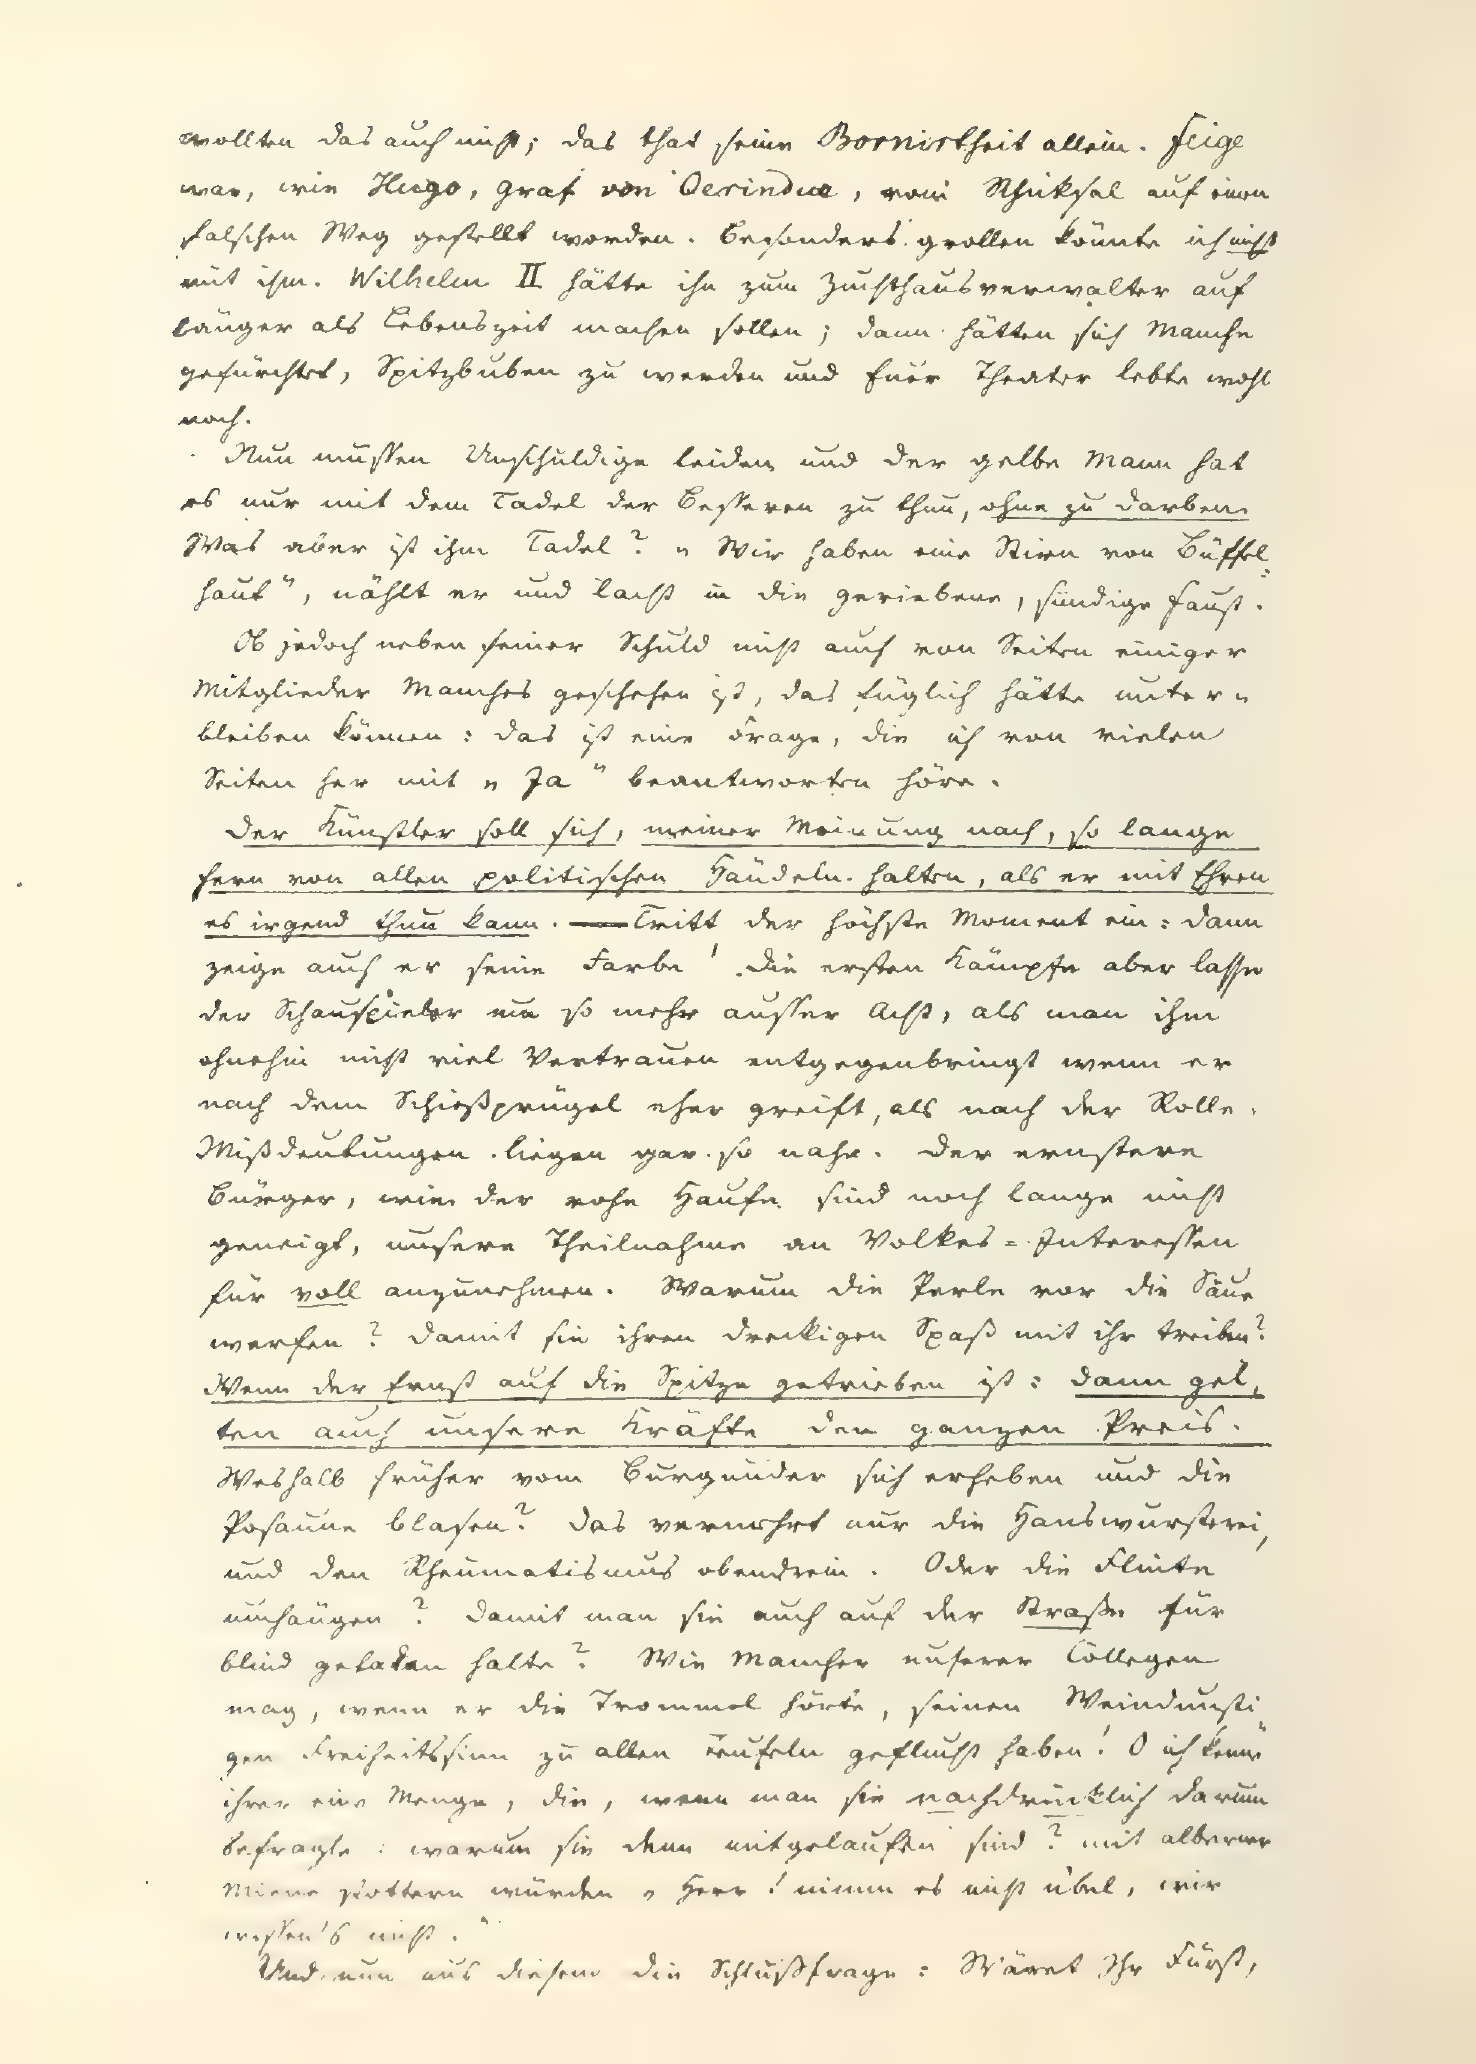 wollten das auch nicht; das that seine Bornirtheit allein. Feige
war, wie Hugo, Graf von Oerindur, vom Schiksal auf einen
falschen Weg gestellt worden. Besonders grollen könnte ich nicht
mit ihm. Wilhelm II hätte ihn zum Zuchthausverwalter auf
länger als Lebenszeit machen sollen; dann hätten sich Manche
gefürchtet, Spitzbuben zu werden und Euer Theater lebte wohl
noch.
Nun müssen Unschuldige leiden und der gelbe Mann hat
es nur mit dem Tadel der Besseren zu thun, ohne zu darben.
Was aber ist ihm Tadel? „Wir haben eine Stirn von Büffel=
haut“, nöhlt er und lacht in die geriebene, sündige Faust.
Ob jedoch neben seiner Schuld nicht auch von Seiten einiger
Mitglieder Manches geschehen ist, das füglich hätte unter=
bleiben können: das ist eine Frage, die ich von vielen
Seiten her mit „Ja“ beantworten höre.
Der Künstler soll sich, meiner Meinung nach, so lange
fern von allen politischen Händeln halten, als er mit Ehren
es irgend thun kann. — Tritt der höchste Moment ein: dann
zeige auch er seine Farbe! Die ersten Kämpfe aber lasse
der Schauspieler um so mehr ausser Acht, als man ihm
ohnehin nicht viel Vertrauen entgegenbringt wenn er
nach dem Schießprügel eher greift, als nach der Rolle.
Mißdeutungen liegen gar so nahe. Der ernstere
Bürger, wie der rohe Haufe sind noch lange nicht
geneigt, unsere Theilnahme an Volkes=Interessen
für voll anzunehmen. Warum die Perle vor die Säue
werfen? Damit sie ihren dreckigen Spaß mit ihr treiben?
Wenn der Ernst auf die Spitze getrieben ist: dann gel=
ten auch unsere Kräfte den ganzen Preis.
Weshalb früher vom Burgunder sich erheben und die
Posaune blasen? Das vermehrt nur die Hanswursterei,
und den Rheumatismus obendrein. Oder die Flinte
umhängen? Damit man sie auch auf der Straße für
blind geladen halte? Wie Mancher unserer Collegen
mag, wenn er die Trommel hörte, seinen Weindunsti=
gen Freiheitssinn zu allen Teufeln geflucht haben! O ich kenne
ihrer eine Menge, die, wenn man sie nachdrücklich darum
befragte: warum sie denn mitgelaufen sind? mit alberner
Miene stottern würden „Herr! nimm es nicht übel, wir
wissen's nicht.“
Und nun aus diesem die Schlußfrage: Wäret Ihr Fürst,